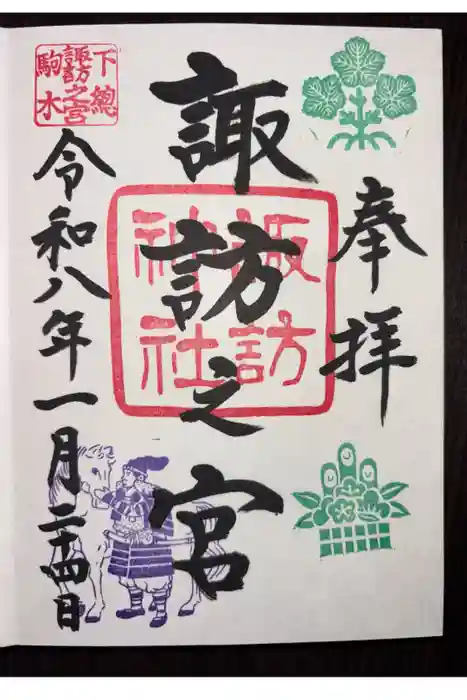 奉拝
諏訪之宮
諏訪
神社
令和八年一月二十四日
下總
諏訪之宮
駒木